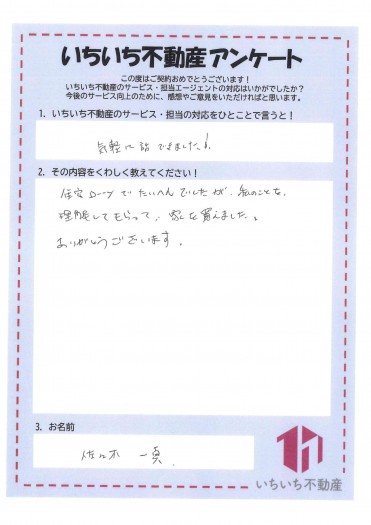 いちいち不動産アンケート
この度はご契約おめでとうございます！
いちいち不動産のサービス・担当エージェントの対応はいかがでしたか？
今後のサービス向上のために、感想やご意見をいただければと思います。
1. いちいち不動産のサービス・担当の対応をひとことで言うと！
気軽に話できました！
2. その内容をくわしく教えてください！
住宅ローンでたいへんでしたが、私のことを、
理解してもらって、家を買えました。
ありがとうございます。
3. お名前
佐々木 一真
いちいち不動産